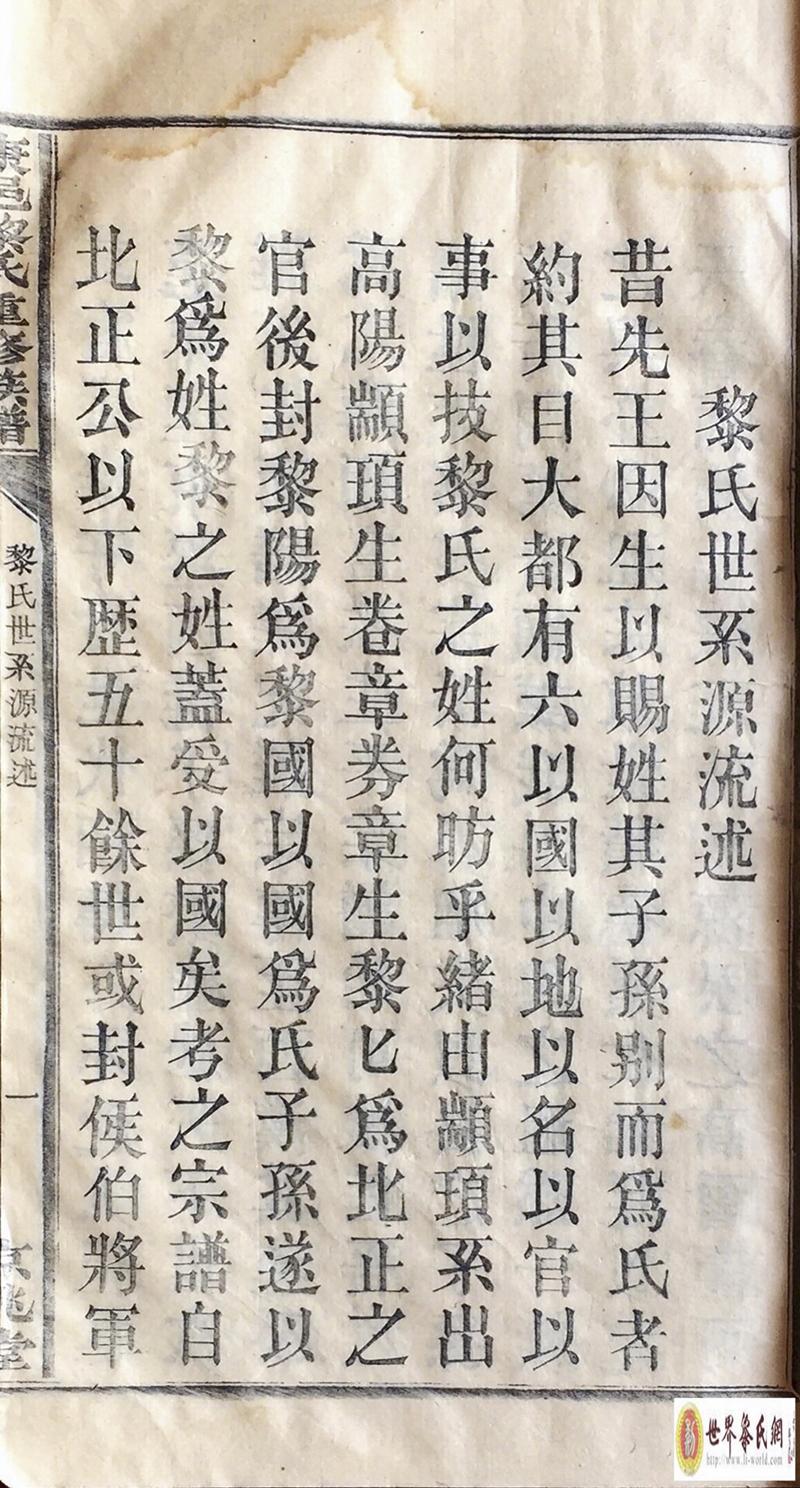 黎氏世系源流述
昔先王因生以賜姓其子孫别而爲氏者
約其目大都有六以國以地以名以官以
事以技黎氏之姓何昉乎緒由顓頊系出
高陽顓頊生卷章券章生黎匕爲北正之
官後封黎陽爲黎國以國爲氏子孫遂以
黎爲姓黎之姓蓋受以國矣考之宗譜自
北正公以下歷五十餘世或封侯伯將軍
邑黎氏重修族譜
黎氏世系源流述
一
京兆堂
世界黎氏網
http://www.ls-world.com